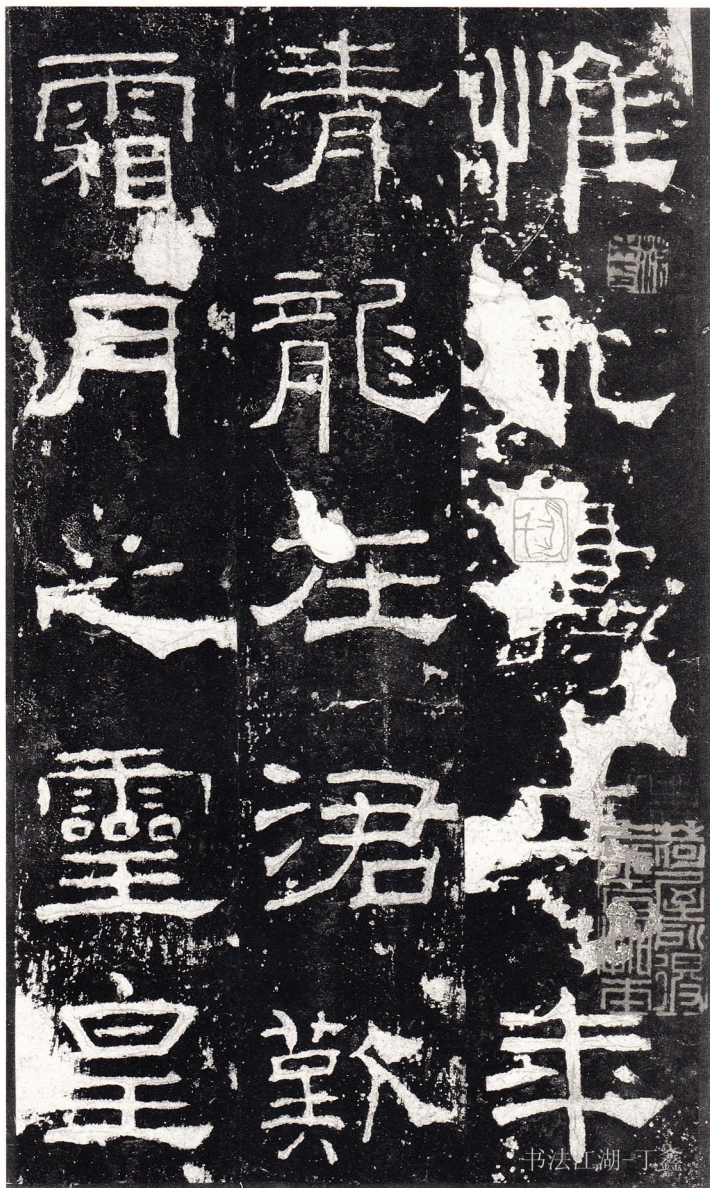 惟永壽二年
青龍在涒歎
霜月之靈皇
书法江湖-丁鑫